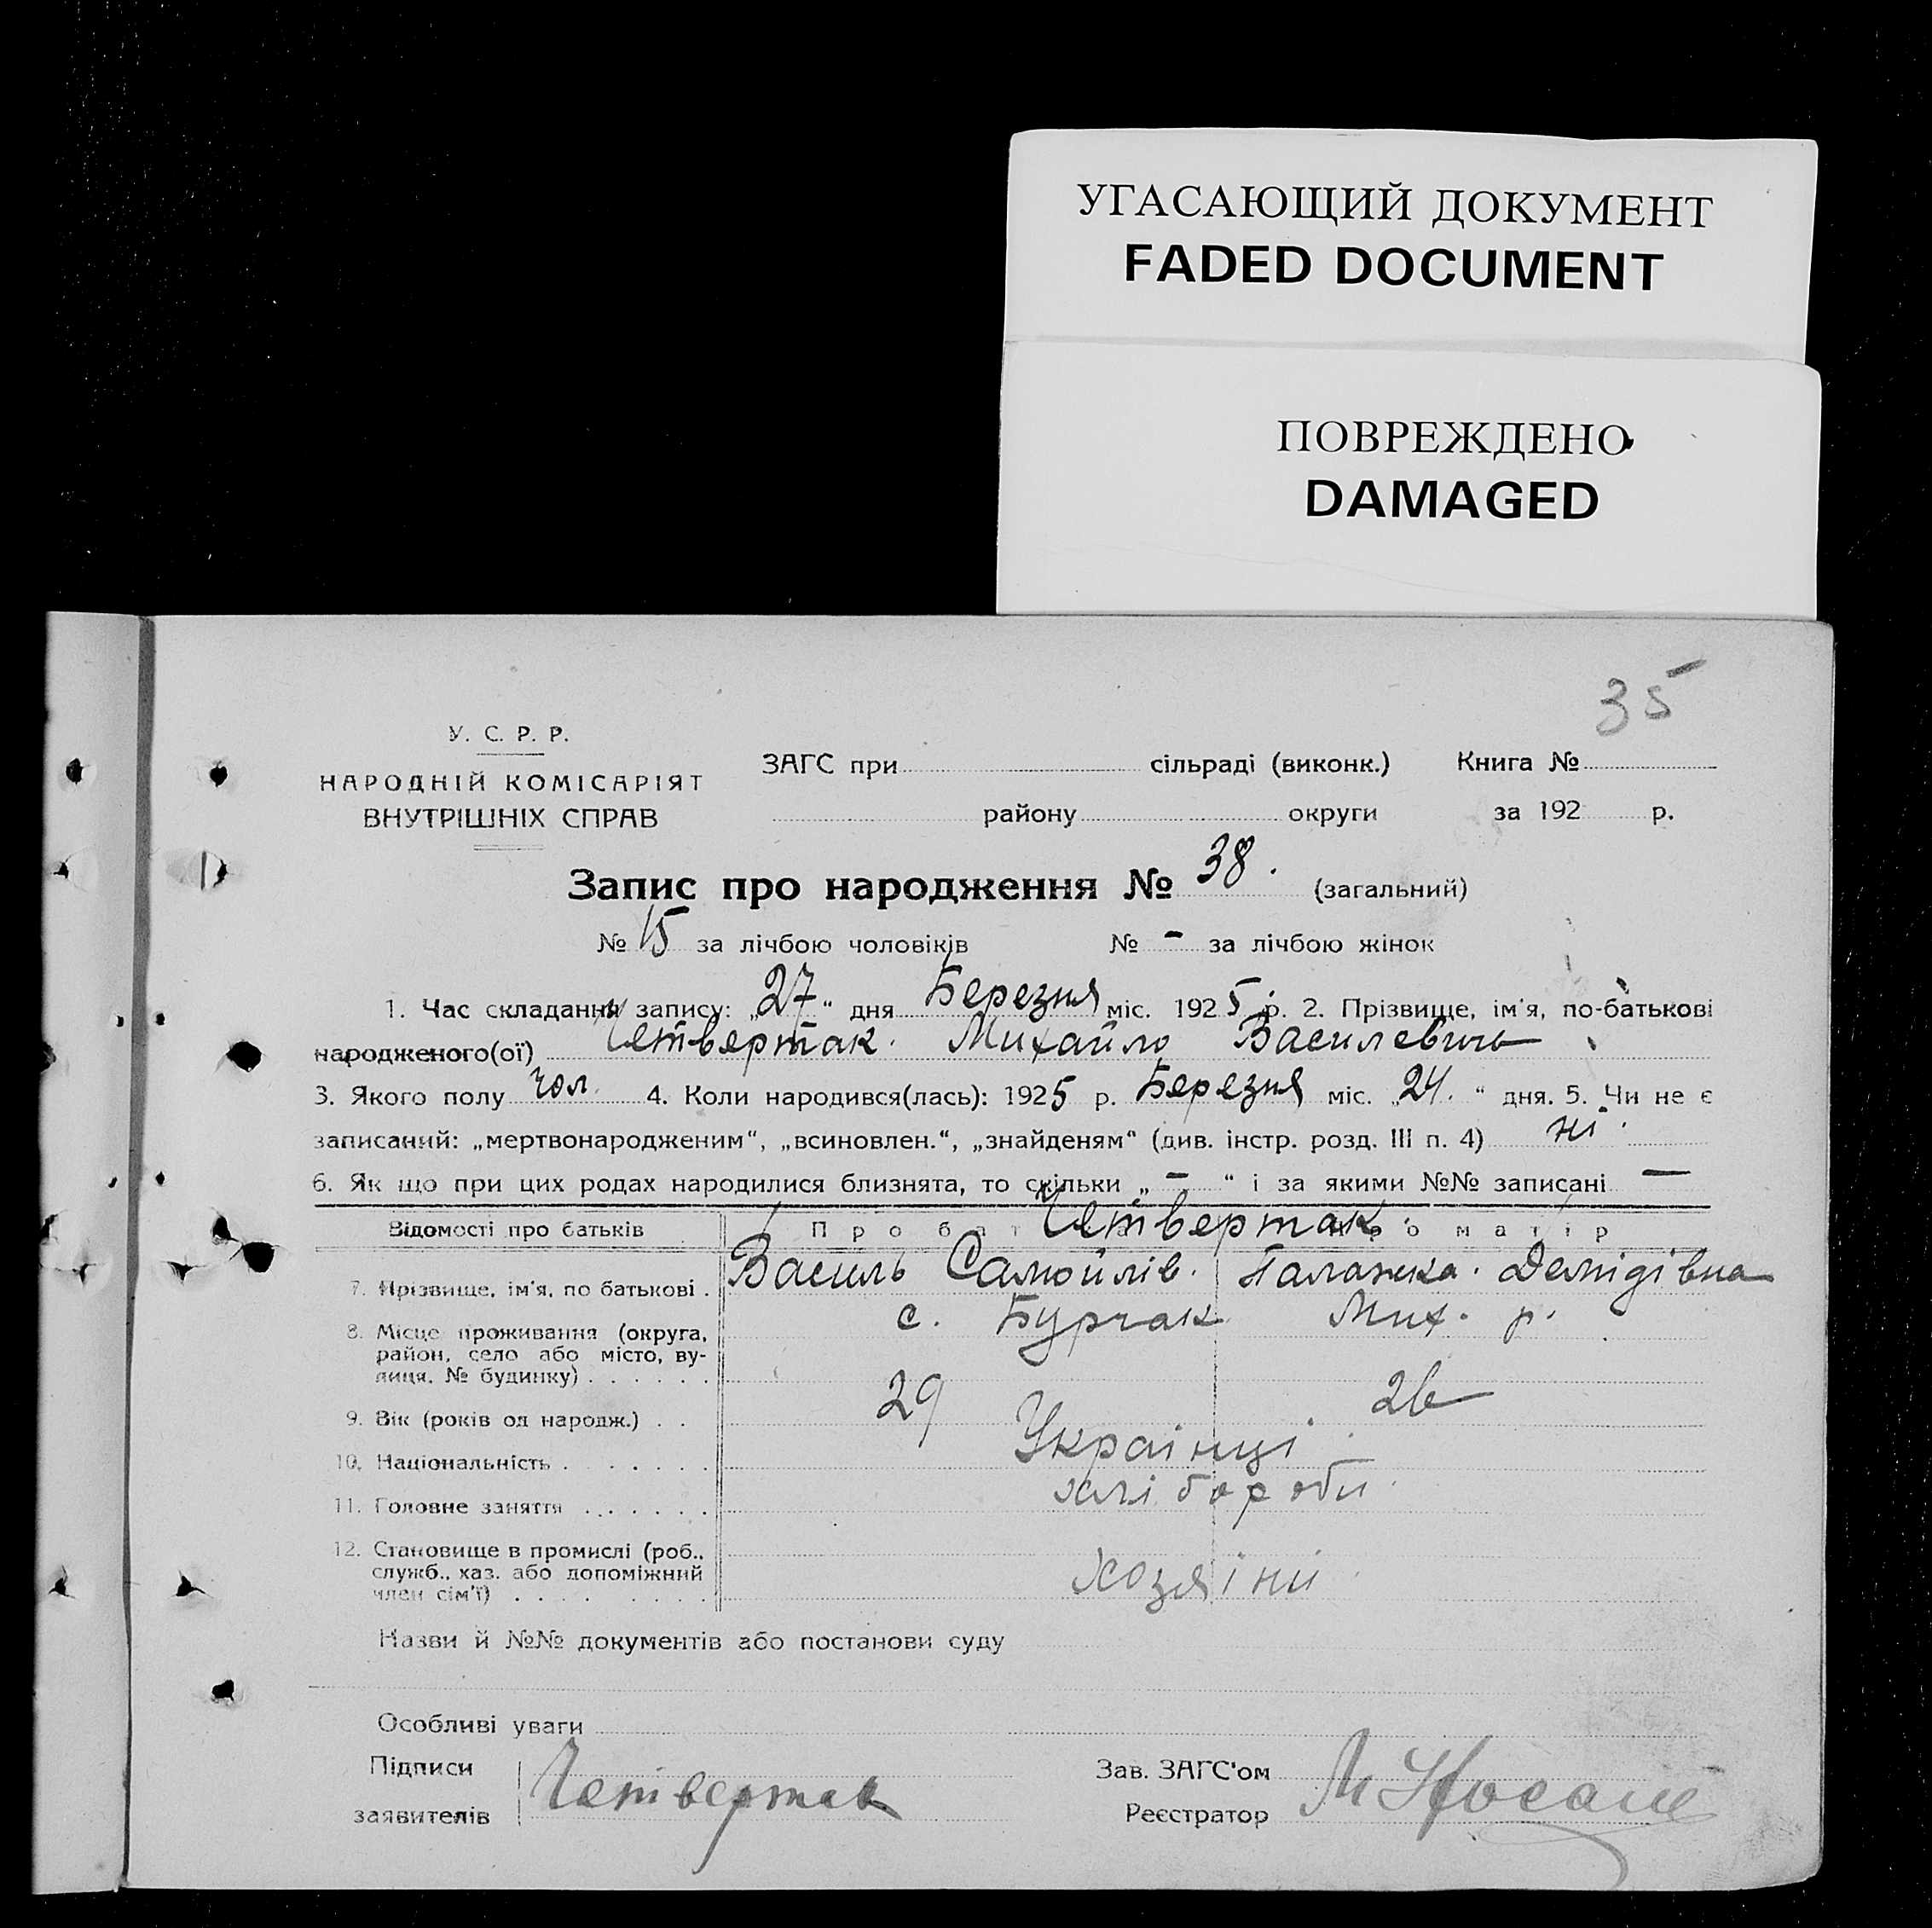 УГАСАЮЩИЙ ДОКУМЕНТ
FADED DOCUMENT
ПОВРЕЖДЕНО
DAMAGED
35
У. С. Р. Р.
НАРОДНІЙ КОМІСАРІЯТ
ВНУТРІШНІХ СПРАВ
ЗАГС при сільраді (виконк.) Книга №
району округи за 192 р.
Запис про народження № 38. (загальний)
№ 15 за лічбою чоловіків № - за лічбою жінок
1. Час складання запису: „27“ дня Березня міс. 1925 р. 2. Прізвище, ім'я, по-батькові
народженого(ої) Четвертак Михайло Василевичь
3. Якого полу чол. 4. Коли народився(лась): 1925 р. Березня міс. „24.“ дня. 5. Чи не є
записаний: „мертвонародженим“, „всиновлен.“, „знайденям“ (див. інстр. розд. III п. 4) ні.
6. Як що при цих родах народилися близнята, то скільки „-“ і за якими №№ записані —
Відомості про батьків Про бат Четвертак о матір
7. Прізвище, ім'я, по батькові . Василь Самойлів. Галажка. Демідівна
8. Місце проживання (округа, с. Бурчак Мих. р.
район, село або місто, ву-
лиця, № будинку) . . . . . .
9. Вік (років од народж.) . . 29 26
10. Національність . . . . . . . Українці.
11. Головне заняття . . . . . . хлібороби.
12. Становище в промислі (роб.,
служб., хаз. або допоміжний хозяіни
член сім'ї) . . . . . . . .
Назви й №№ документів або постанови суду
Особливі уваги
Підписи Зав. ЗАГС'ом
заявителів Четвертак Реєстратор